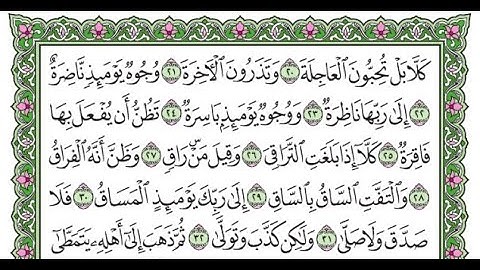 كَلَّا بَلْ تُحِبُّونَ ٱلْعَاجِلَةَ ٢٠ وَتَذَرُونَ ٱلْأَخِرَةَ ٢١ وُجُوهٌ يَوْمَئِذٍ نَّاضِرَةٌ
٢٢ إِلَىٰ رَبِّهَا نَاظِرَةٌ ٢٣ وَوُجُوهٌ يَوْمَئِذٍۭ بَاسِرَةٌ ٢٤ تَظُنُّ أَن يُفْعَلَ بِهَا
فَاقِرَةٌ ٢٥ كَلَّآ إِذَا بَلَغَتِ ٱلتَّرَاقِيَ ٢٦ وَقِيلَ مَنْ ۜ رَاقٍ ٢٧ وَظَنَّ أَنَّهُ ٱلْفِرَاقُ
٢٨ وَٱلْتَفَّتِ ٱلسَّاقُ بِٱلسَّاقِ ٢٩ إِلَىٰ رَبِّكَ يَوْمَئِذٍ ٱلْمَسَاقُ ٣٠ فَلَا
صَدَّقَ وَلَا صَلَّىٰ ٣١ وَلَٰكِن كَذَّبَ وَتَوَلَّىٰ ٣٢ ثُمَّ ذَهَبَ إِلَىٰٓ أَهْلِهِۦ يَتَمَطَّىٰٓ